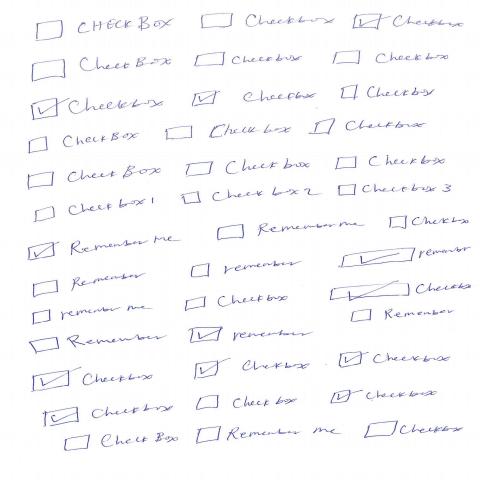 ☐ CHECKBOX ☐ Checkbox ☑ Checkbox
☐ CheckBox ☐ Checkbox ☐ Checkbox
☑ Checkbox ☑ Checkbox ☐ Checkbox
☐ CheckBox ☐ Checkbox ☐ Checkbox
☐ CheckBox ☐ Checkbox ☐ Checkbox
☐ Checkbox 1 ☐ Checkbox 2 ☐ Checkbox 3
☑ Remember Me ☐ Remember me ☐ Checkbox
☐ Remember ☐ remember ☑ remember
☐ remember me ☐ Checkbox ☑ Checkbox
☐ Remember ☑ remember ☐ Remember
☑ Checkbox ☑ Checkbox ☑ Checkbox
☑ Checkbox ☐ Checkbox ☑ Checkbox
☐ CheckBox ☐ Remember me ☐ Checkbox